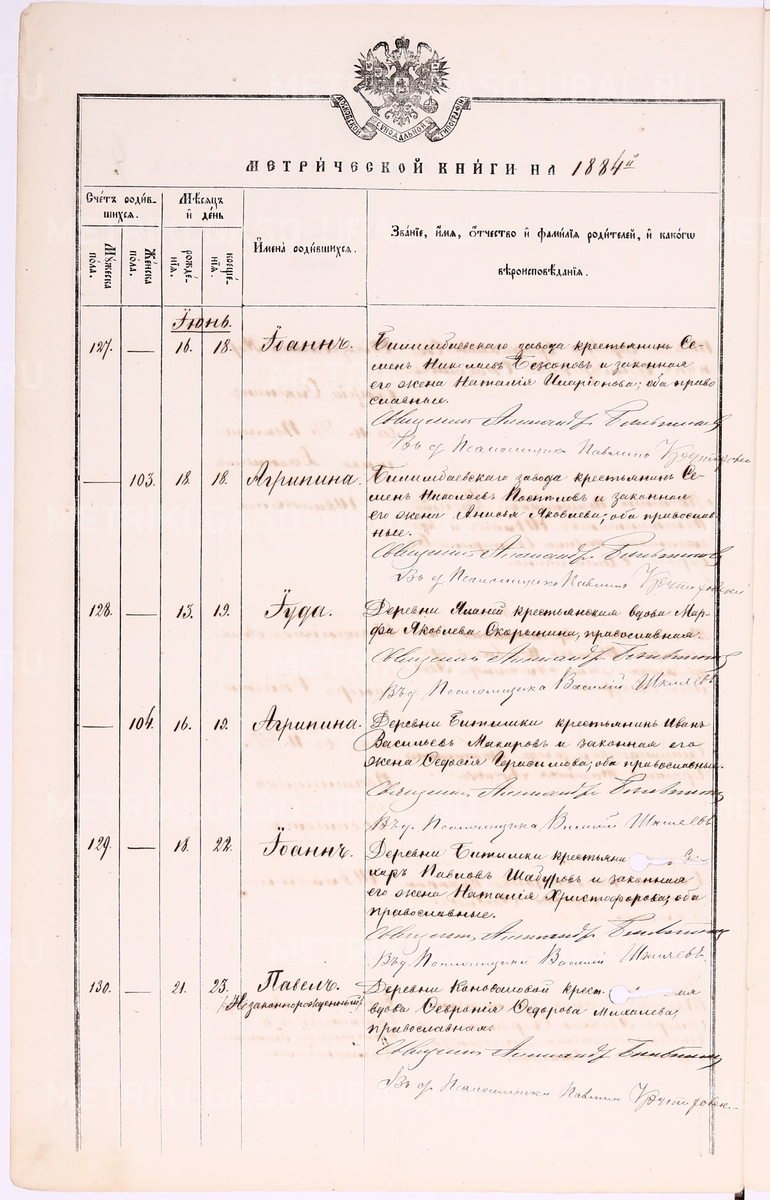 МОСКОВСКОЙ СѴНОДАЛЬНОЙ ТИПОГРАФІИ
МЕТРИ́ЧЕСКОЙ КНИ́ГИ НА 1884й
Сче́тъ роди́в-
шихся.
Мѣ́сяцъ
и҆ де́нь
Му́жеска по́ла.
Же́нска по́ла.
рожде́-
нїѧ.
креще́-
нїѧ.
И҆мена̀ роди́вшихся.
Зва́нїе, и҆́мѧ, ѻ҆́тчество и҆ фами́лїѧ роди́телей, и҆ како́гѡ
вѣроисповѣ́данїѧ.
Іюнь.
127. — 16. 18. Іоаннъ. Билимбаевскаго завода крестьянинъ Се-
менъ Николаевъ и законная
его жена Наталія Иларіонова; оба право
славные.
Священникъ Александръ
Въ д. Псаломщика Павлинъ
— 103. 18. 18. Агрипина. Билимбаевскаго завода крестьянинъ Се-
менъ Николаевъ и законная
его жена Анисья Яковлева; оба православ-
ные.
Священникъ Александръ
Въ д. Псаломщика Павлинъ
128. — 13. 19. Іуда. Деревни крестьянская вдова Мар-
фа Яковлева Скорынина, православная.
Священникъ Александръ
Въ д. Псаломщика Василій Шиляевъ
— 104. 16. 19. Агрипина. Деревни Битимки крестьянинъ Иванъ
Васильевъ Макаровъ и законная его
жена Ѳедосія Герасимова; оба православные.
Священникъ Александръ
Въ д. Псаломщика Василій Шиляевъ
129. — 18. 22. Іоаннъ. Деревни Битимки крестьяни За-
харъ Павловъ Шабуровъ и законная
его жена Наталія Христофорова; оба
православные.
Священникъ Александръ
Въ д. Псаломщика Василій Шиляевъ.
130. — 21. 23. Павелъ. Деревни Коноваловой крест
(Незаконнорожденный) вдова Ѳевронія Ѳедорова Михалева;
православная.
Священникъ Александръ
Въ д. Псаломщика Павлинъ